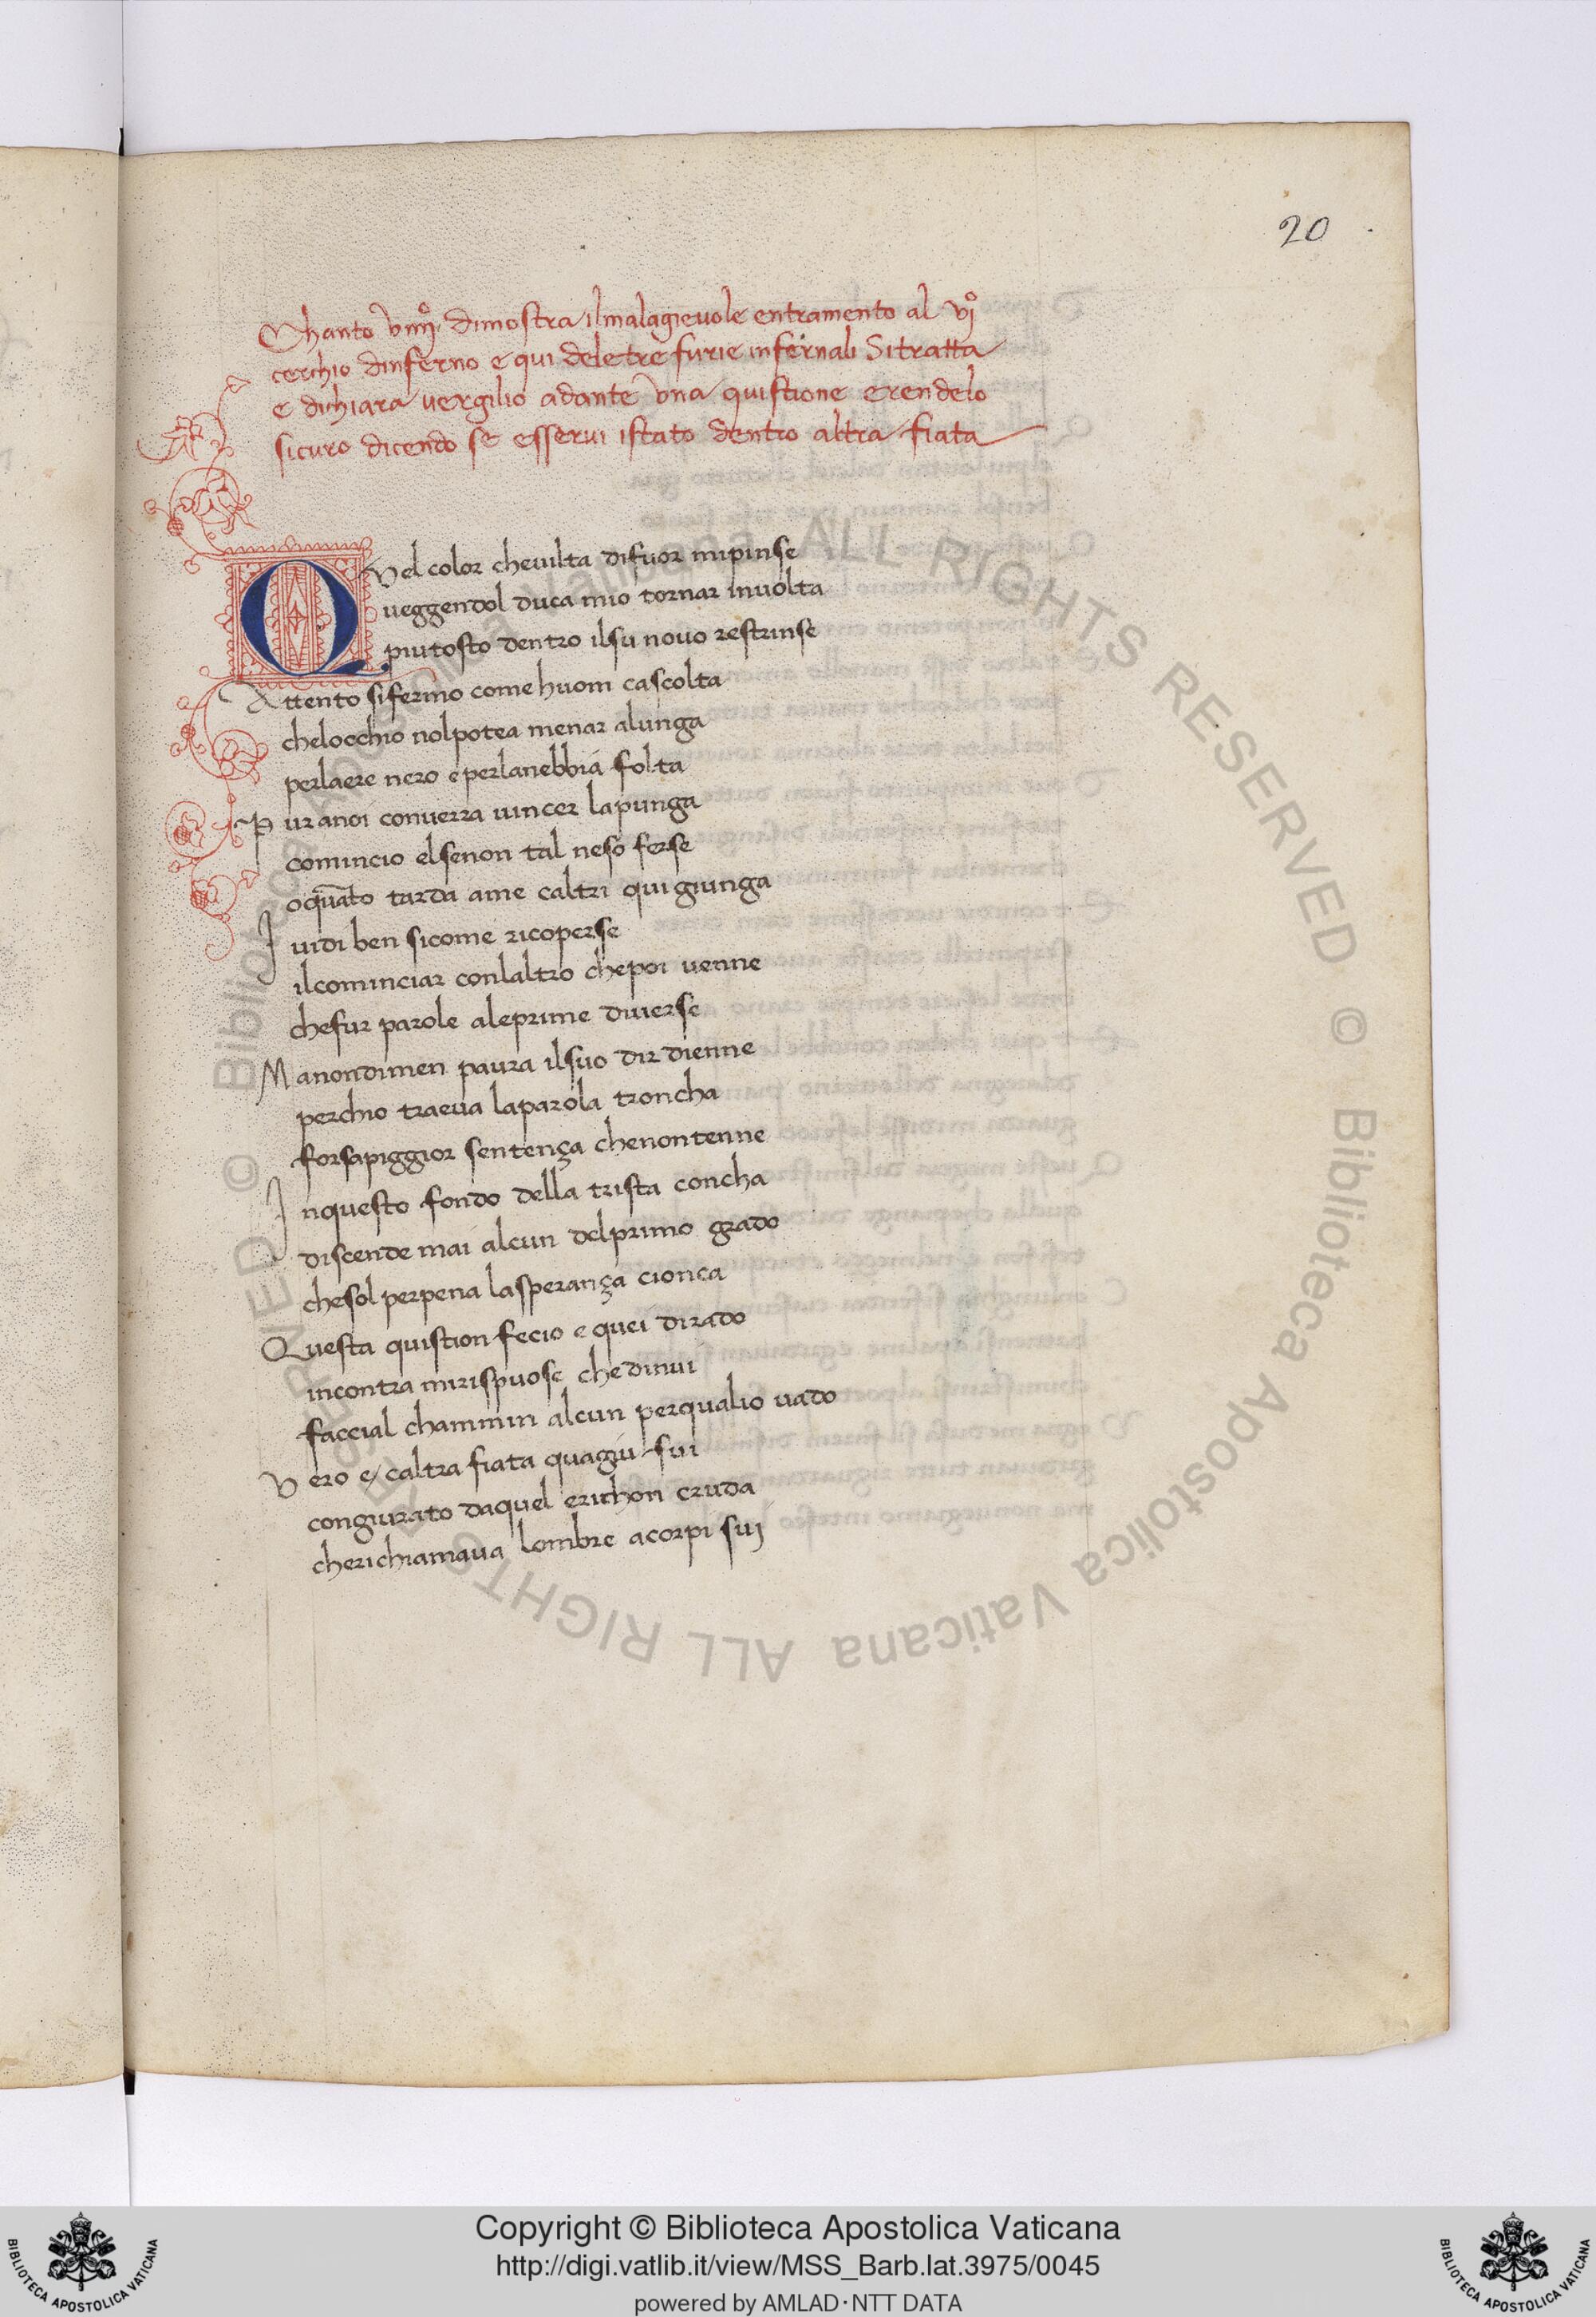 20
Chanto viiijº. dimostra ilmalagievole entramento al vjº
cerchio dinferno e qui deletre furie infernali Sitratta
e dichiara vergilio adante vna quistione erendelo
sicuro dicendo se esservi istato dentro altra fiata
Qvel color cheuilta difuor mipinse
ueggendol duca mio tornar inuolta
piutosto dentro ilsu nouo restrinse
Attento sifermo come huom cascolta
chelocchio nolpotea menar alunga
perlaere nero e perlanebbia folta
Pur anoi conuerra uincer lapunga
comincio elsenon tal neso ferse
oquãto tarda ame caltri qui giunga
I uidi ben sicome ricoperse
ilcominciar conlaltro chepoi uenne
chefur parole aleprime diuerse
Manondimen paura ilsuo dir dienne
perchio traeua laparola troncha
forsapiggior sentença chenontenne
Inquesto fondo della trista concha
discende mai alcun delprimo grado
chesol perpena lasperança cionca
Questa quistion fecio e quei dirado
incontra mirispuose chedinui
faccial chammin alcun perqualio uado
Vero e caltra fiata quagiu fui
congiurato daquel erithon cruda
cherichiamaua lombre acorpi suj
© Biblioteca Apostolica Vaticana ALL RIGHTS RESERVED © Biblioteca Apostolica Vaticana ALL RIGHTS RESERVED
Copyright © Biblioteca Apostolica Vaticana
http://digi.vatlib.it/view/MSS_Barb.lat.3975/0045
powered by AMLAD·NTT DATA
BIBLIOTECA APOSTOLICA VATICANA
BIBLIOTECA APOSTOLICA VATICANA